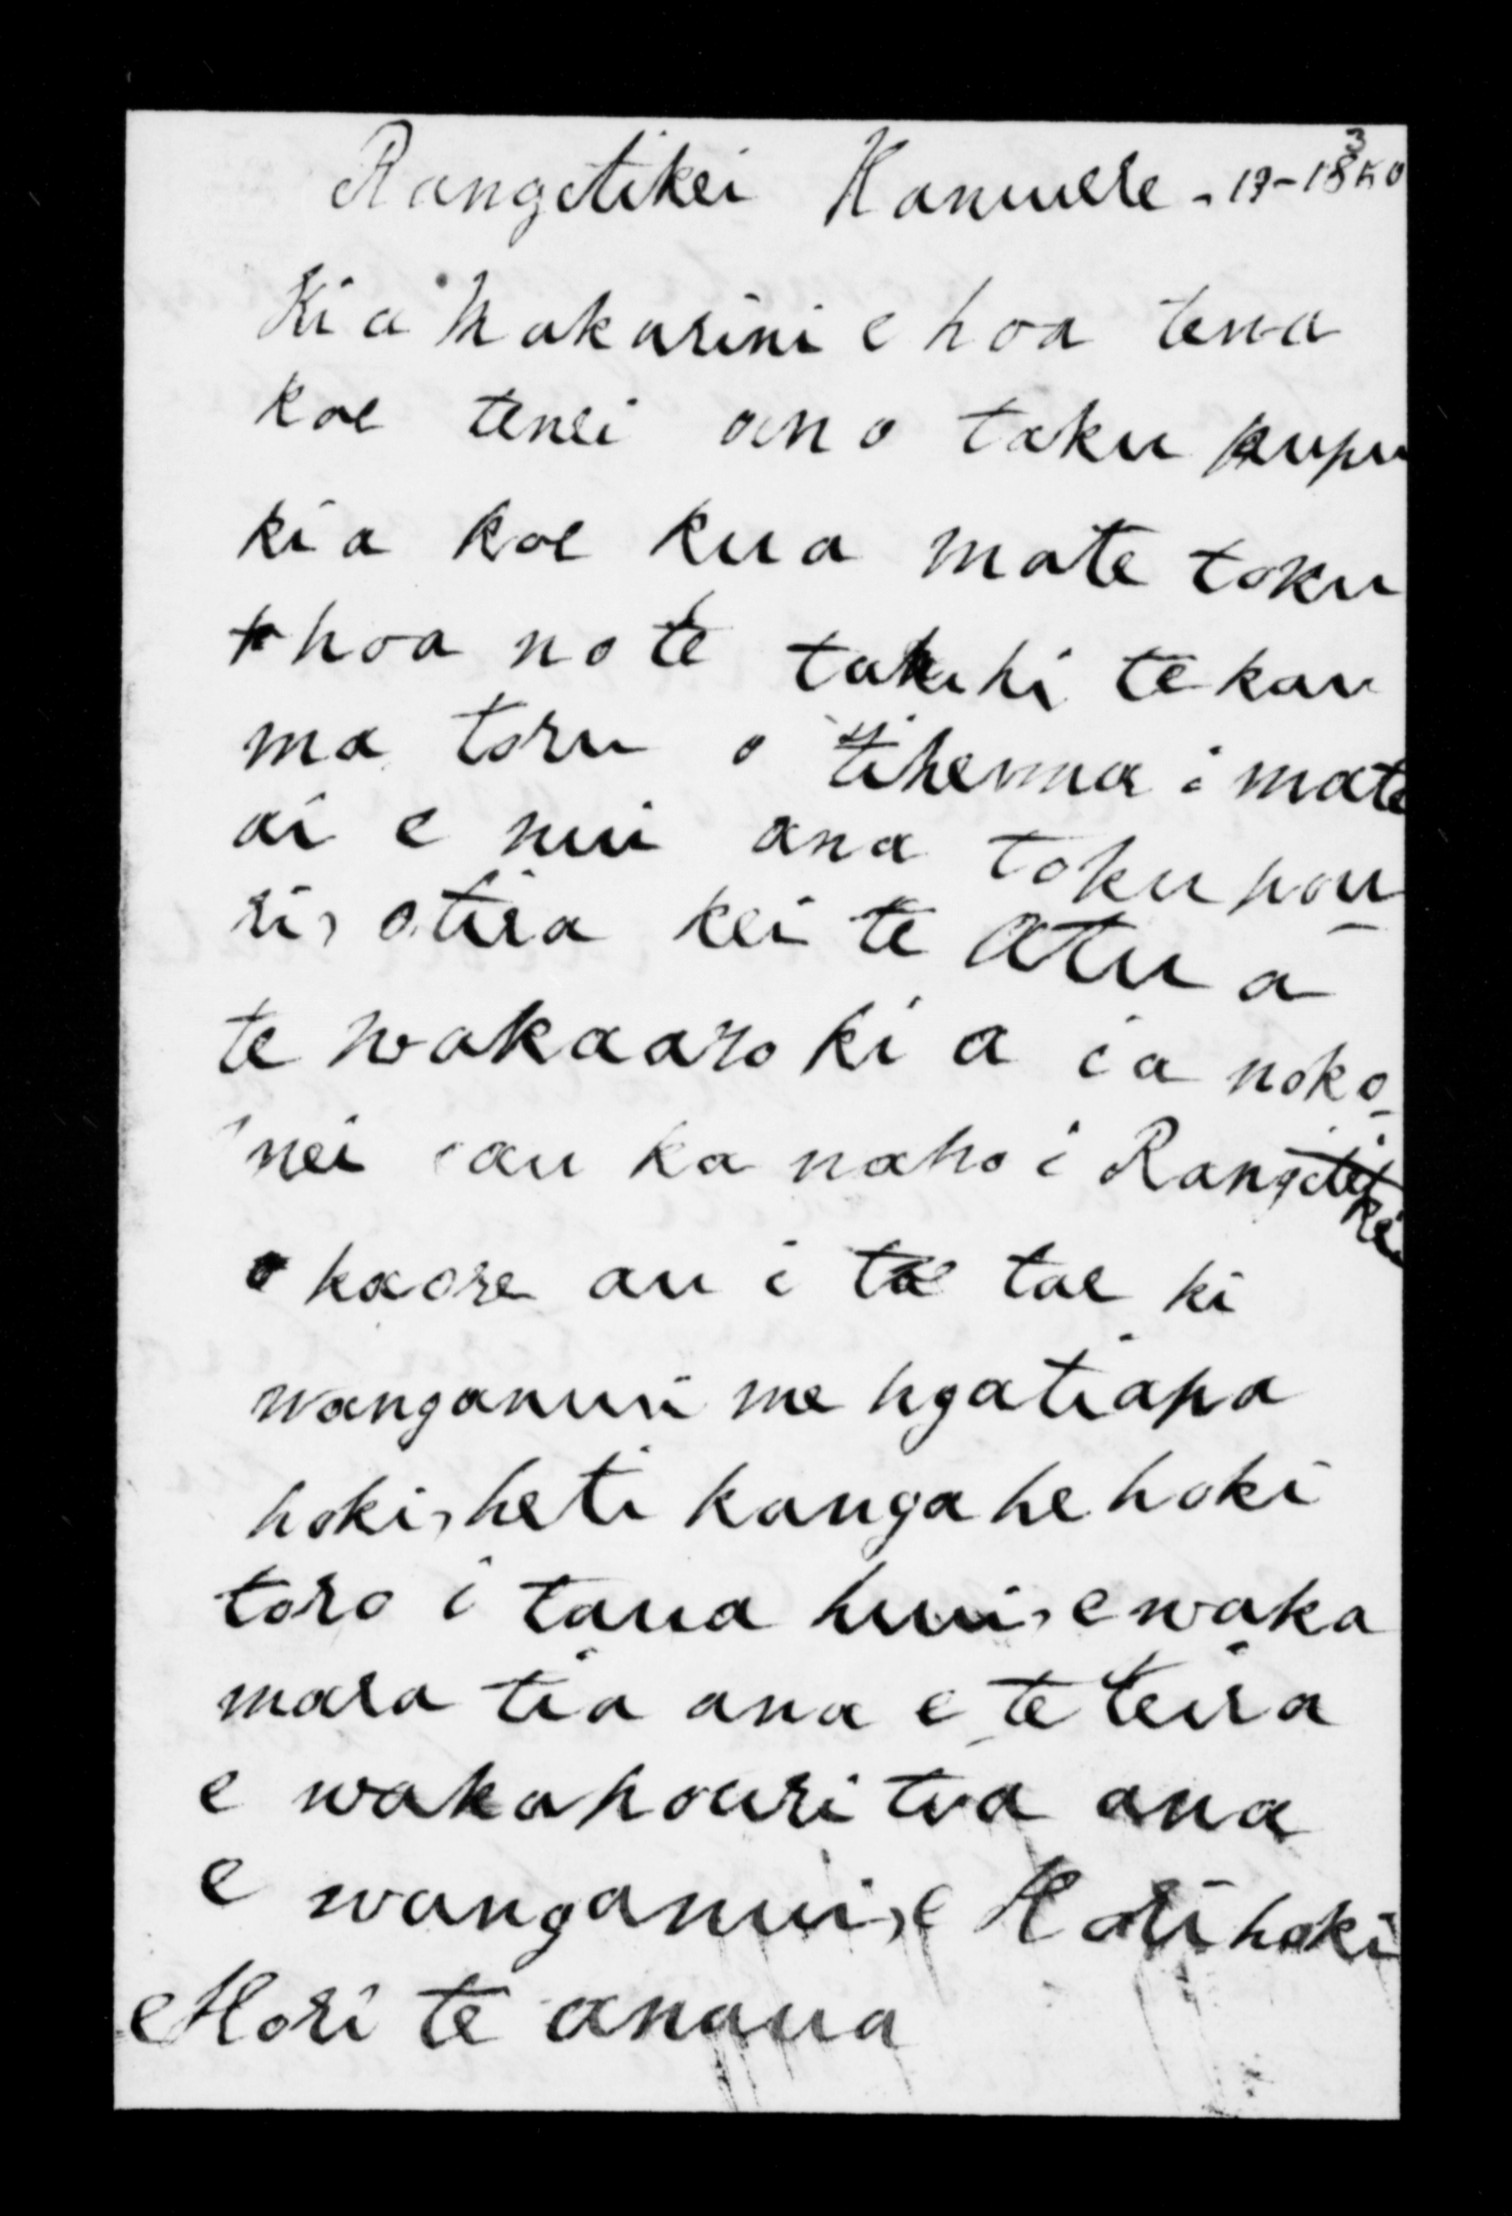 Rangitikei Hanuere - 19 - 1850
Ki a Makarini e hoa tena
koe tenei ano taku kupu
ki a koe kua mate toku
hoa no te tekau
ma toru o tihema i mate
ai e nui ana toku pou
ri, otira kei te Atua
te wakaaro ki a ia noko
nei au ka noho i Rangitikei
kaore au i tae ki
wanganui me ngatiapa
hoki, heti kanga he hoki
toro i taua hui, e waka
mara tia ana e te teira
e wakapouri tia ana
e wanganui, e Hori hoki
e Hori te anaua